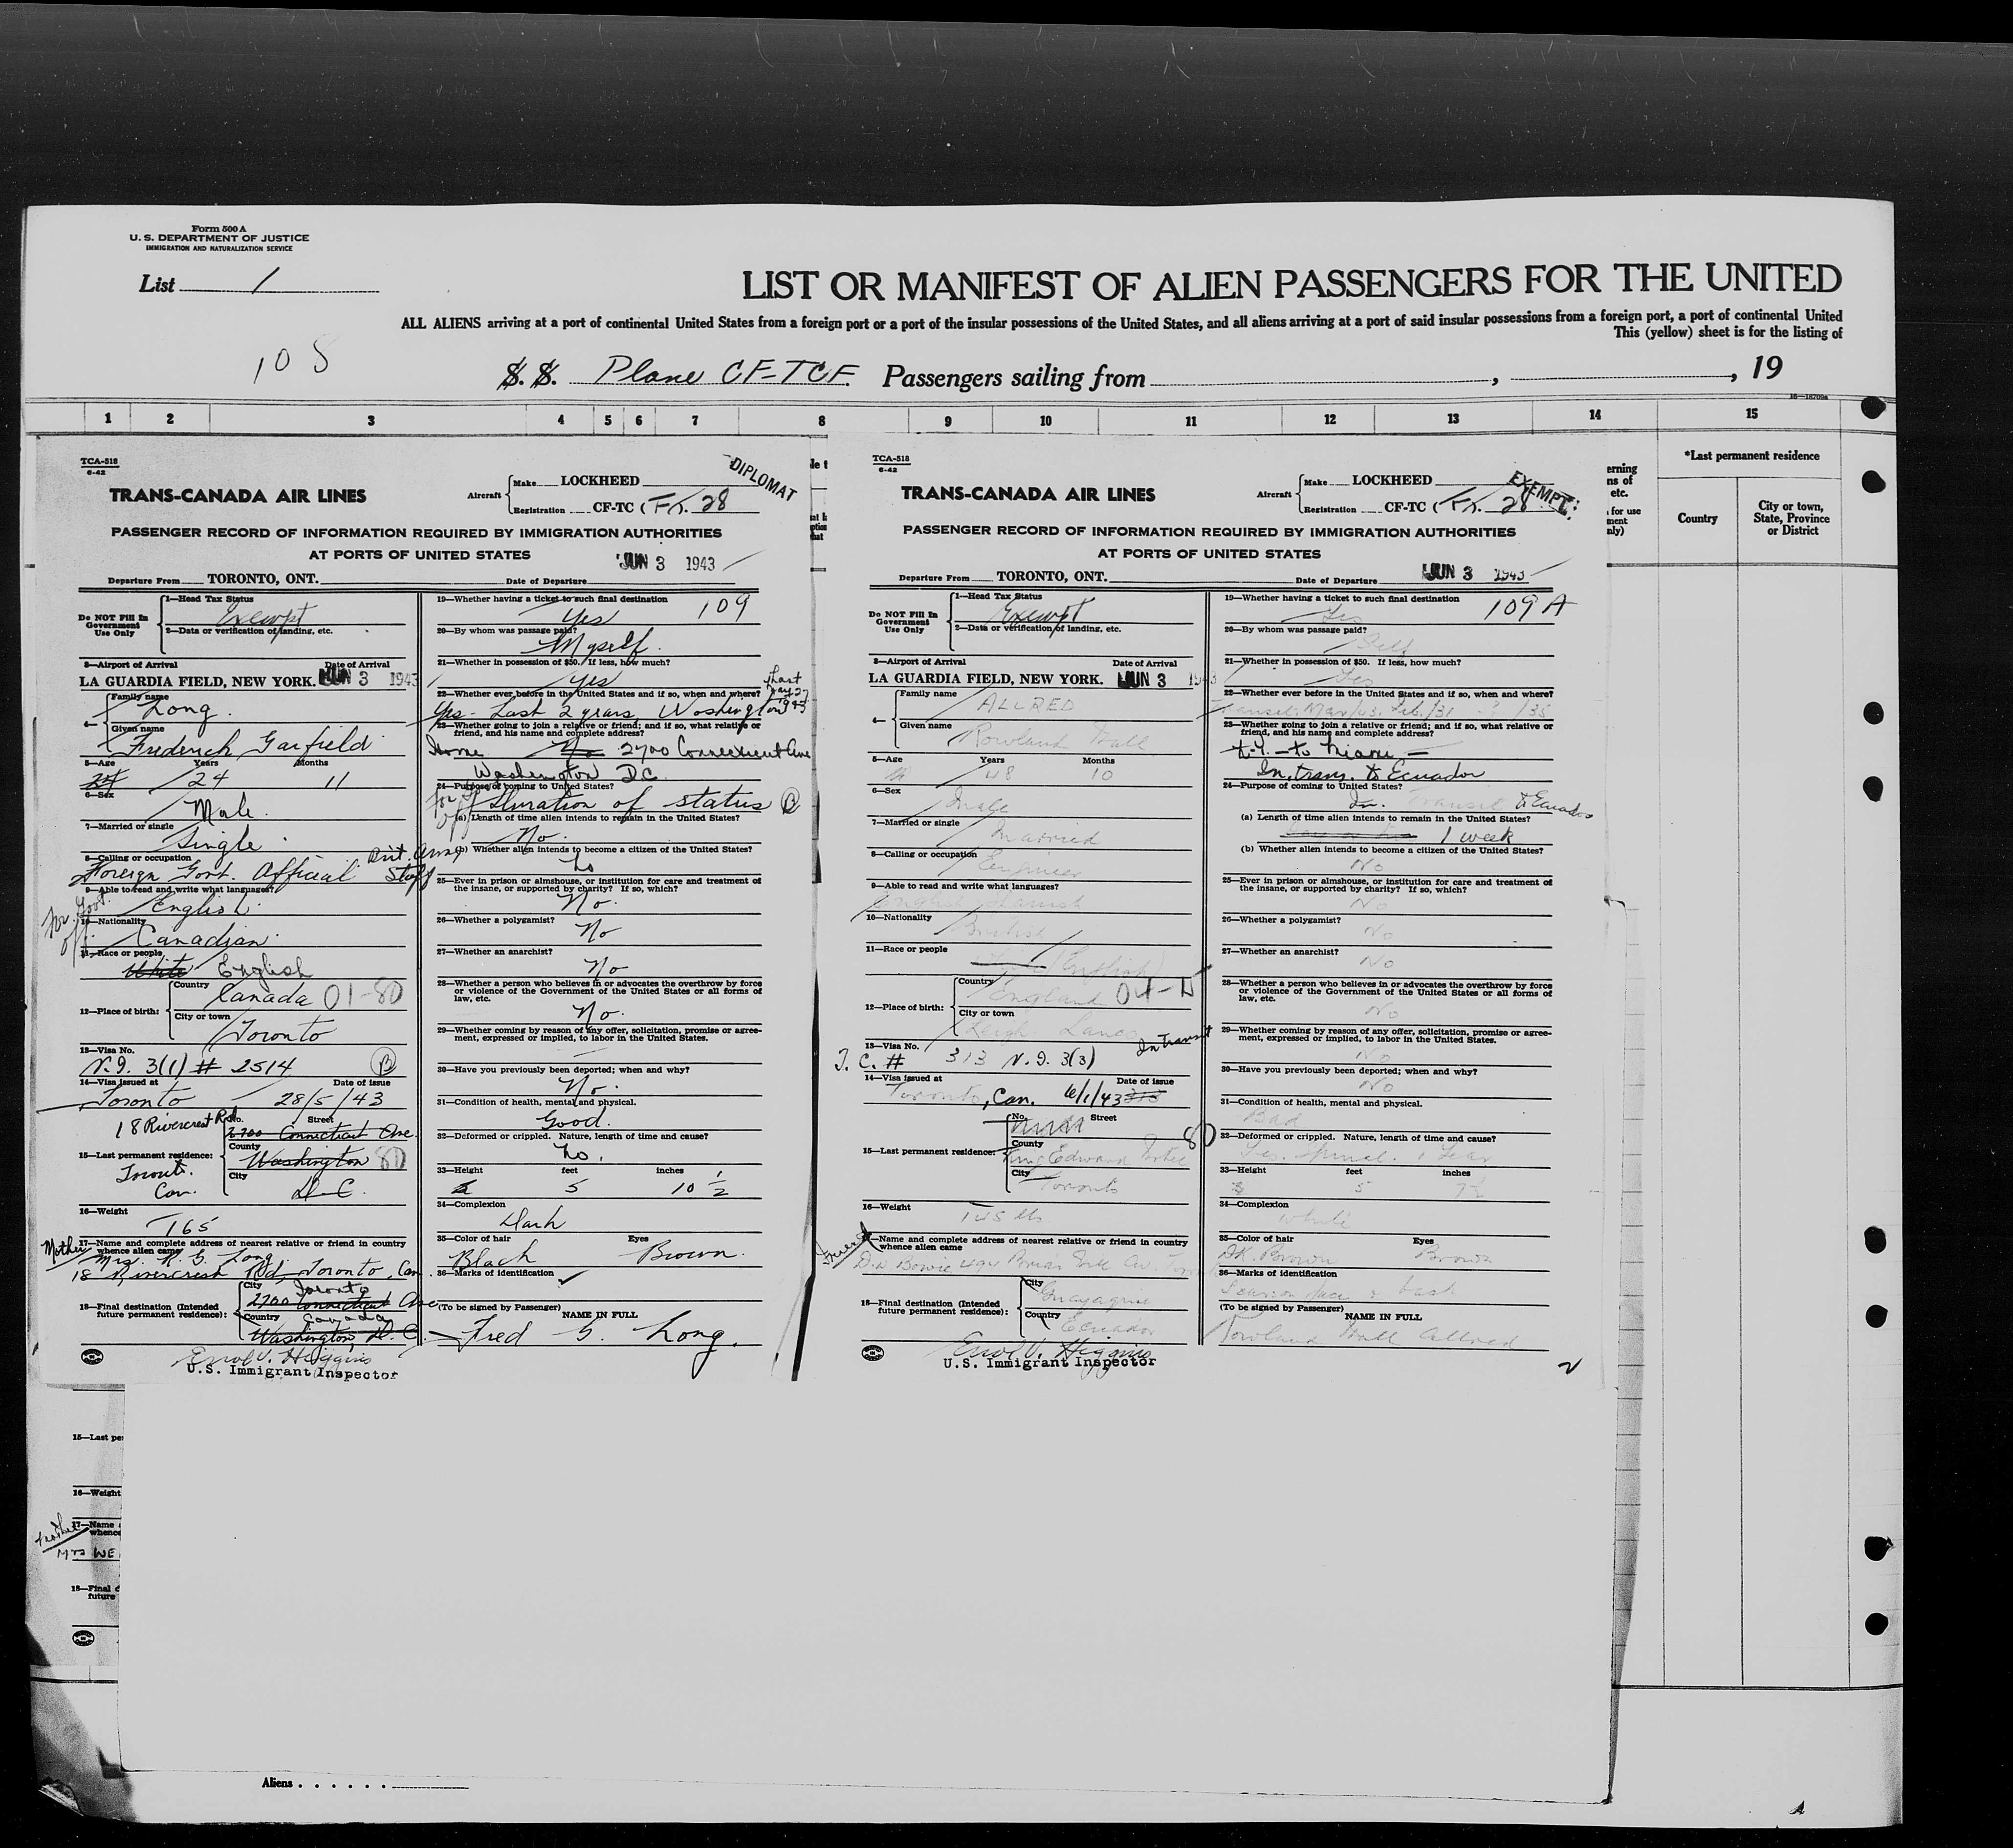 Form 500 A
U. S. DEPARTMENT OF JUSTICE
IMMIGRATION AND NATURALIZATION SERVICE
List 1
LIST OR MANIFEST OF ALIEN PASSENGERS FOR THE UNITED
ALL ALIENS arriving at a port of continental United States from a foreign port or a port of the insular possessions of the United States, and all aliens arriving at a port of said insular possessions from a foreign port, a port of continental United
This (yellow) sheet is for the listing of
105
S. S. Plane CF-TCF Passengers sailing from , , 19
1 2 3 4 5 6 7 8 9 10 11 12 13 14 15
*Last permanent residence
Country
City or town, State, Province or District
TCA-518
6-42
TRANS-CANADA AIR LINES
Aircraft
Make LOCKHEED
Registration CF-TC (F). 28
DIPLOMAT
PASSENGER RECORD OF INFORMATION REQUIRED BY IMMIGRATION AUTHORITIES
AT PORTS OF UNITED STATES
JUN 3 1943
Departure From TORONTO, ONT. Date of Departure
Do NOT Fill In Government Use Only
1—Head Tax Status
Exempt
2—Data or verification of landing, etc.
3—Airport of Arrival Date of Arrival
LA GUARDIA FIELD, NEW YORK. JUN 3 1943
4— Family name
Long
Given name
Frederick Garfield
5—Age Years Months
24 24 11
6—Sex
Male.
7—Married or single
Single
8—Calling or occupation
Foreign Govt. Official Brit. Army Staff
9—Able to read and write what languages?
English
10—Nationality
Canadian
11—Race or people
White English
12—Place of birth:
Country
Canada 01-80
City or town
Toronto
13—Visa No.
N.I. 3(1) # 2514 B
14—Visa issued at Date of issue
Toronto 28/5/43
15—Last permanent residence:
18 Rivercrest Rd.
Toronto. Can.
No. Street
2700 Connecticut Ave.
County
Washington 80
City
D.C.
16—Weight
165
17—Name and complete address of nearest relative or friend in country whence alien came
Mother Mrs. R. G. Long
18 Rivercrest Rd. Toronto, Can.
18—Final destination (Intended future permanent residence):
City Toronto
2700 Connecticut Ave
Country Canada
Washington D.C.
Errol V. Higgins
U.S. Immigrant Inspector
19—Whether having a ticket to such final destination
Yes 109
20—By whom was passage paid?
Myself.
21—Whether in possession of $50. If less, how much?
Yes
22—Whether ever before in the United States and if so, when and where?
Yes - Last 2 years, Washington
23—Whether going to join a relative or friend; and if so, what relative or friend, and his name and complete address?
Home No 2700 Connecticut Ave
Washington D.C.
24—Purpose of coming to United States?
Duration of status B
(a) Length of time alien intends to remain in the United States?
No.
(b) Whether alien intends to become a citizen of the United States?
No
25—Ever in prison or almshouse, or institution for care and treatment of the insane, or supported by charity? If so, which?
No.
26—Whether a polygamist?
No
27—Whether an anarchist?
No
28—Whether a person who believes in or advocates the overthrow by force or violence of the Government of the United States or all forms of law, etc.
No.
29—Whether coming by reason of any offer, solicitation, promise or agreement, expressed or implied, to labor in the United States.
30—Have you previously been deported; when and why?
No.
31—Condition of health, mental and physical.
Good.
32—Deformed or crippled. Nature, length of time and cause?
No.
33—Height feet inches
5 10 1/2
34—Complexion
Dark
35—Color of hair Eyes
Black Brown.
36—Marks of identification
(To be signed by Passenger) NAME IN FULL
Fred G. Long.
TCA-518
6-42
TRANS-CANADA AIR LINES
Aircraft
Make LOCKHEED
Registration CF-TC (F). 28
EXEMPT.
PASSENGER RECORD OF INFORMATION REQUIRED BY IMMIGRATION AUTHORITIES
AT PORTS OF UNITED STATES
JUN 3 1943
Departure From TORONTO, ONT. Date of Departure
Do NOT Fill In Government Use Only
1—Head Tax Status
Exempt
2—Data or verification of landing, etc.
3—Airport of Arrival Date of Arrival
LA GUARDIA FIELD, NEW YORK. JUN 3 1943
4— Family name
ALLRED
Given name
Rowland Hall
5—Age Years Months
48 10
6—Sex
Male
7—Married or single
Married
8—Calling or occupation
Engineer
9—Able to read and write what languages?
English Spanish
10—Nationality
British
11—Race or people
(English)
12—Place of birth:
Country
England
City or town
Leigh Lancs
13—Visa No.
T. C. # 313 N.I. 3(3) In Transit
14—Visa issued at Date of issue
Toronto, Can. 6/1/43
15—Last permanent residence:
No. Street
County
King Edward Hotel 80
City
Toronto
16—Weight
145 lbs.
17—Name and complete address of nearest relative or friend in country whence alien came
Friend
18—Final destination (Intended future permanent residence):
City
Guayaquil
Country
Ecuador
Errol V. Higgins
U.S. Immigrant Inspector
19—Whether having a ticket to such final destination
Yes 109 A
20—By whom was passage paid?
Self
21—Whether in possession of $50. If less, how much?
Yes
22—Whether ever before in the United States and if so, when and where?
23—Whether going to join a relative or friend; and if so, what relative or friend, and his name and complete address?
N.Y. - to Miami -
In trans. to Ecuador
24—Purpose of coming to United States?
In Transit to Ecuador
(a) Length of time alien intends to remain in the United States?
1 week
(b) Whether alien intends to become a citizen of the United States?
No
25—Ever in prison or almshouse, or institution for care and treatment of the insane, or supported by charity? If so, which?
No
26—Whether a polygamist?
No
27—Whether an anarchist?
No
28—Whether a person who believes in or advocates the overthrow by force or violence of the Government of the United States or all forms of law, etc.
No
29—Whether coming by reason of any offer, solicitation, promise or agreement, expressed or implied, to labor in the United States.
No
30—Have you previously been deported; when and why?
No
31—Condition of health, mental and physical.
Bad
32—Deformed or crippled. Nature, length of time and cause?
33—Height feet inches
5 7½
34—Complexion
White
35—Color of hair Eyes
DK. Brown Brown
36—Marks of identification
(To be signed by Passenger) NAME IN FULL
Rowland Hall Allred
2
15—Last pe
16—Weight
17—Name
whence
Mrs WE
18—Final d
future
Aliens